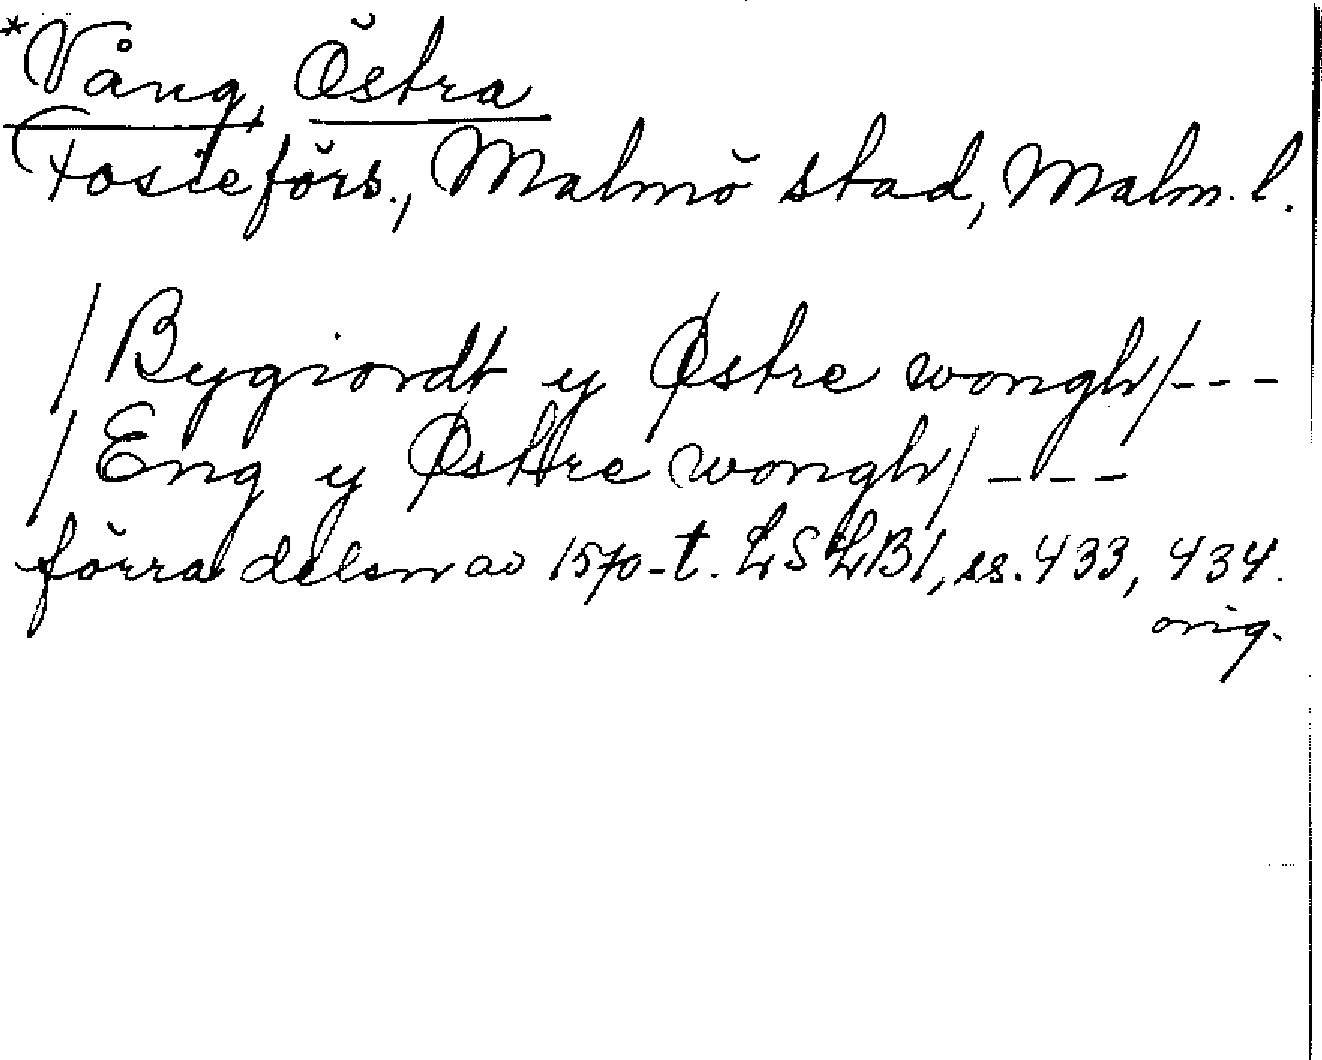 *Vång, Östra
Fosie förs., Malmö stad, Malm. l.
/Bygiordt y Østre wongh/---
/Eng y Østre wongh/---
förra delen av 1570-t. LSLB1, ss. 433, 434.
orig.